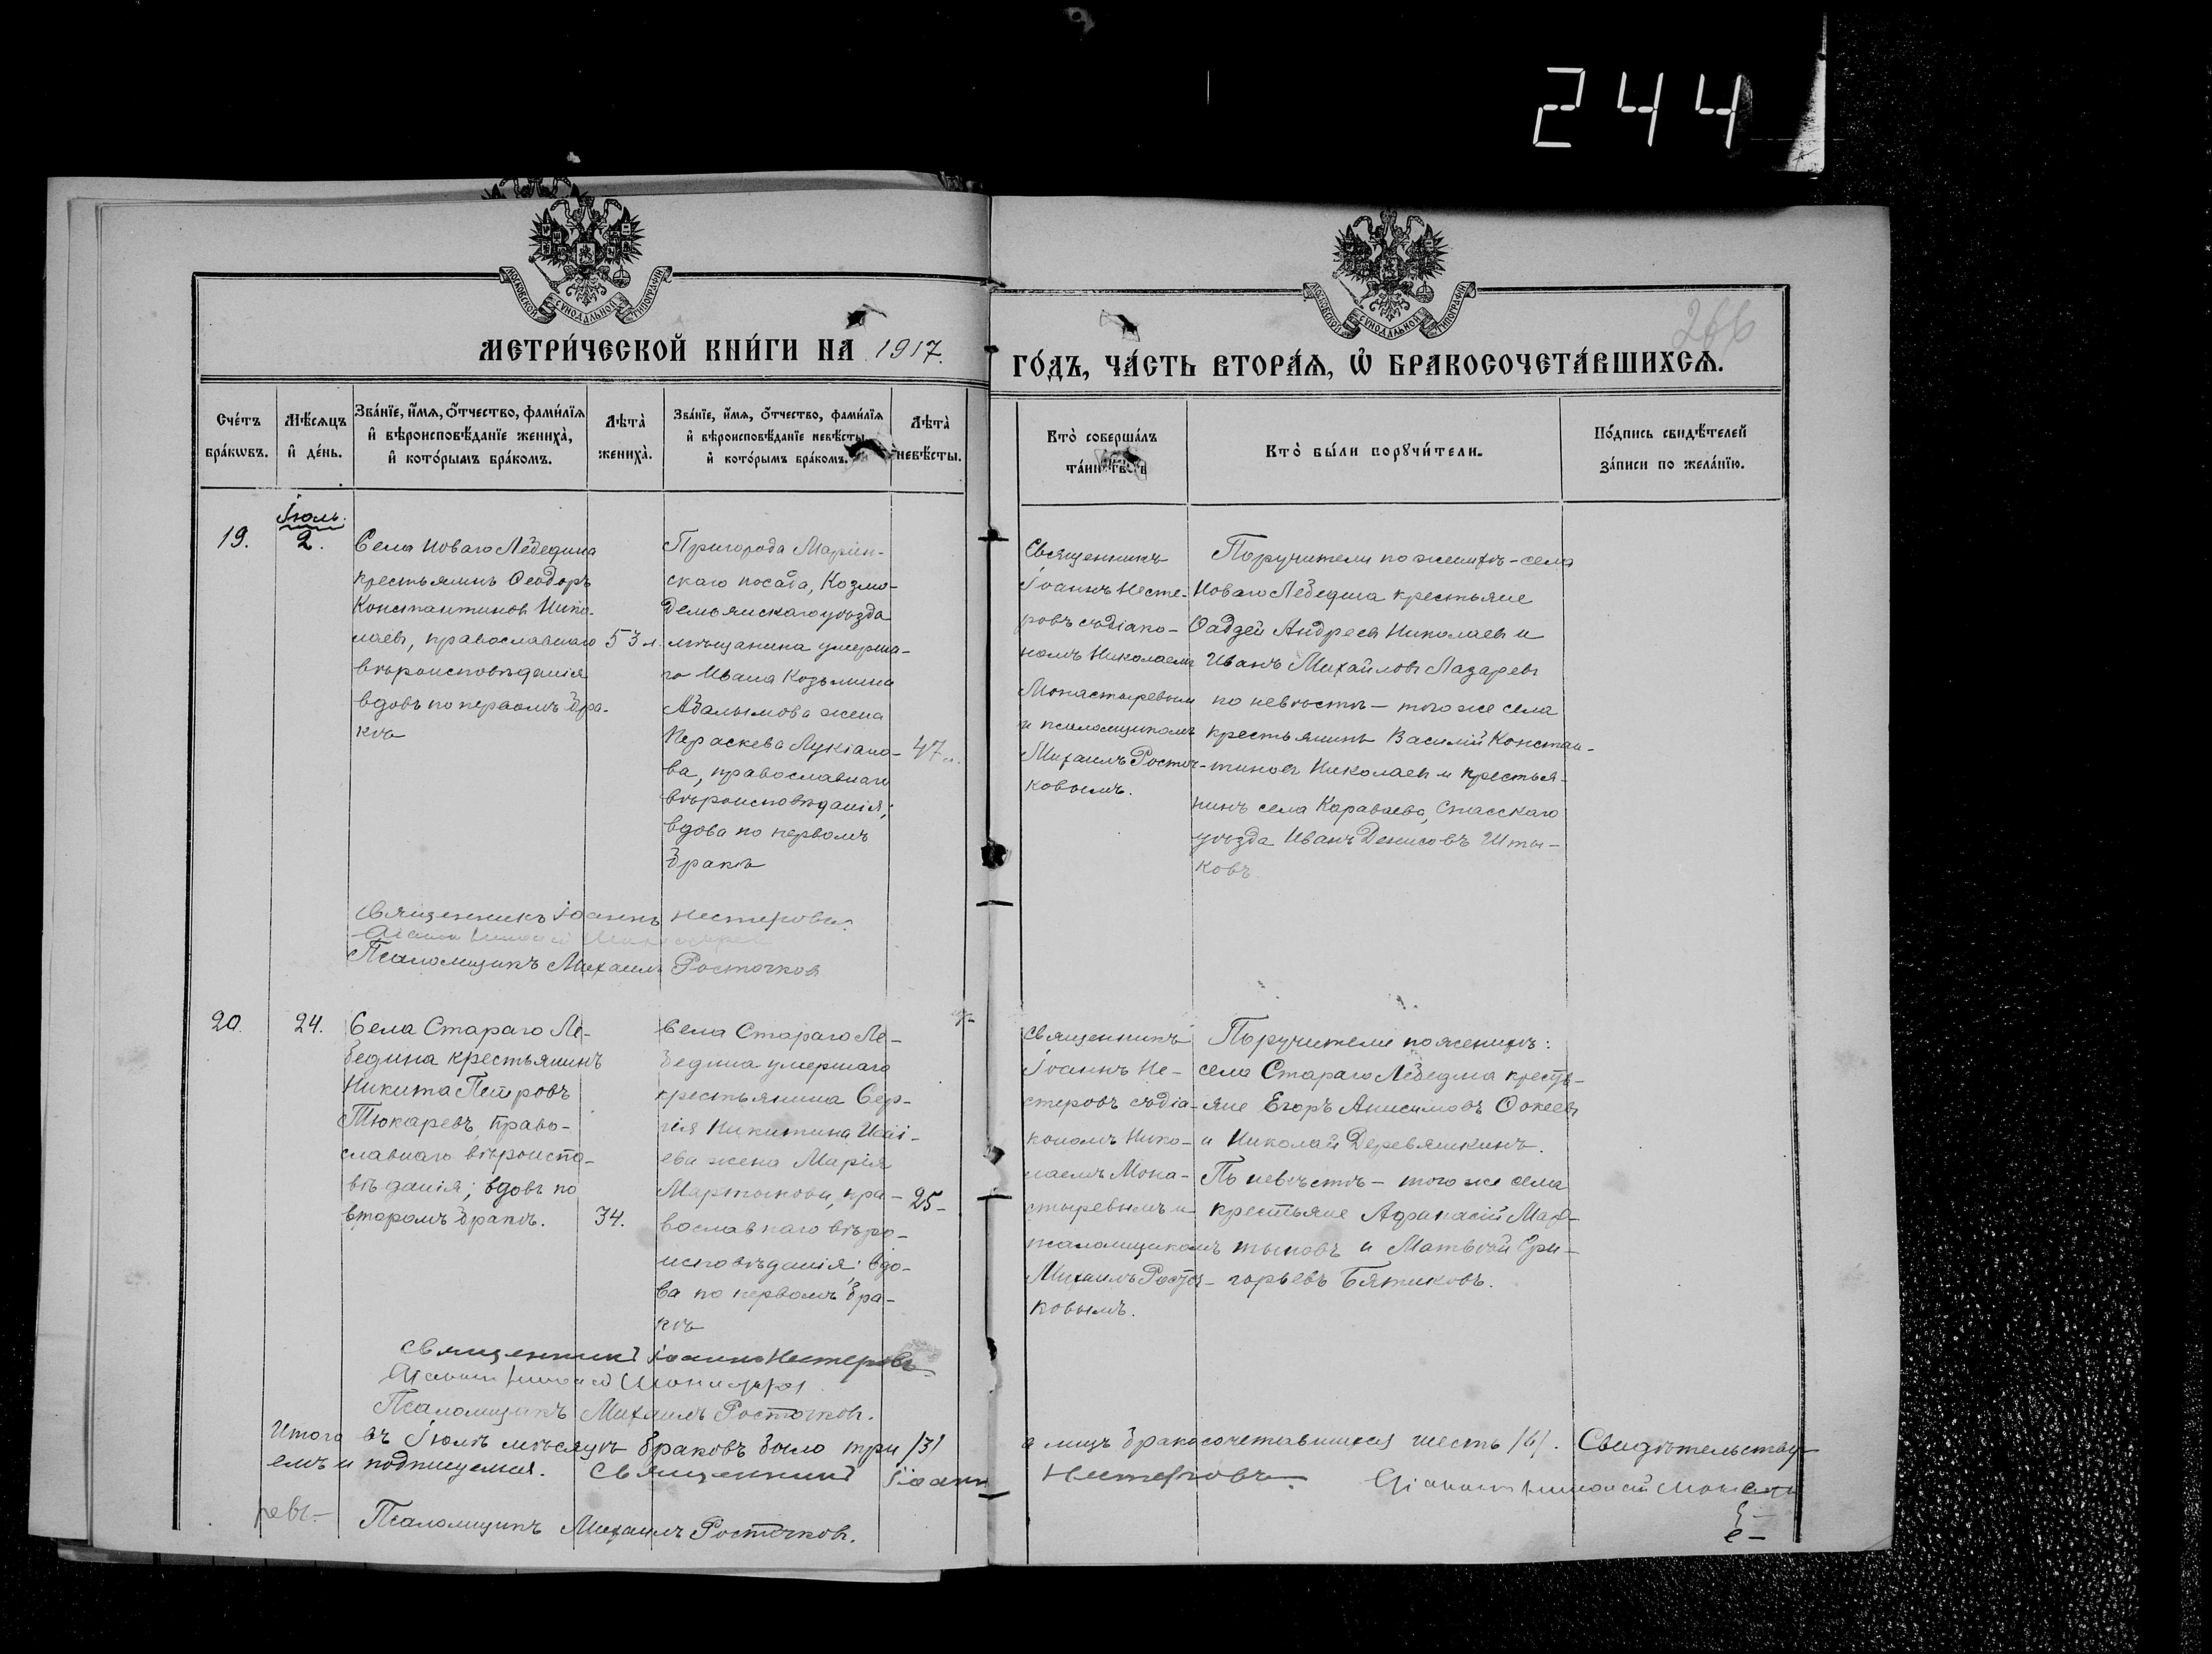 244
266
МОСКОВСКОЙ СѴНОДАЛЬНОЙ ТИПОГРАФІИ
МОСКОВСКОЙ СѴНОДАЛЬНОЙ ТИПОГРАФІИ
МЕТРИ́ЧЕСКОЙ КНИ́ГИ НА 1917.
ГО́ДЪ, ЧА́СТЬ ВТОРА́Я, Ѡ҆ БРАКОСОЧЕТА́ВШИХСѦ.
Сче́тъ бра́кѡвъ.
Мѣ́сѧцъ и҆ де́нь.
Зва́нїе, и҆́мѧ, ѻ҆́тчество, фами́лїѧ
и҆ вѣроисповѣ́данїе жениха̀,
и҆ кото́рымъ бра́комъ.
Лѣта̀ жениха̀.
Зва́нїе, и҆́мѧ, ѻ҆́тчество, фами́лїѧ
и҆ вѣроисповѣ́данїе невѣ́сты
и҆ кото́рымъ бра́комъ.
Лѣта̀ невѣ́сты.
Кто̀ соверша́лъ
та́инство
Кто̀ бы́ли порꙋчи́тели.
По́дпись свидѣ́телей
за́писи по жела́нїю.
19.
Іюль.
2.
Села Новаго Лебедина
крестьянинъ Ѳеодоръ
Константиновъ Нико-
лаевъ, православнаго
вѣроисповѣданія
вдовъ по первомъ бра-
кѣ
53 л.
Пригорода Маріин-
скаго посада, Козмо-
демьянскаго уѣзда
мѣщанина умерша-
го Ивана Козьмина
Абалымова жена
Параскева Лукіано-
ва, православнаго
вѣроисповѣданія;
вдова по первомъ
бракѣ
47 л.
Священникъ
Іоаннъ Несте-
ровъ съ діако-
номъ Николаемъ
Монастыревымъ
и псаломщикомъ
Михаилъ Росточ-
ковымъ.
Поручители по женихѣ - села
Новаго Лебедина крестьяне
Ѳаддей Андреевъ Николаевъ и
Иванъ Михайловъ Лазаревъ
по невѣстѣ - того же села
крестьянинъ Василій Констан-
тиновъ Николаевъ и крестья-
нинъ села Караваева, Спасскаго
уѣзда Иванъ Денисовъ Шты-
ковъ
Священникъ Іоаннъ Нестеровъ.
Діаконъ Николай
Псаломщикъ Михаилъ Росточковъ
20.
24.
Села Стараго Ле-
бедина крестьянинъ
Никита Петровъ
Тюкаревъ, право-
славнаго вѣроиспо-
вѣданія; вдовъ по
второмъ бракѣ.
34.
Села Стараго Ле-
бедина умершаго
крестьянина Сер-
гія Никитина Исаі-
ева жена Марія
Мартынова, пра-
вославнаго вѣро-
исповѣданія; вдо-
ва по первомъ бра-
кѣ
25-
Священникъ
Іоаннъ Не-
стеровъ съ діа-
кономъ Нико-
лаемъ Мона-
стыревымъ и
псаломщикомъ
Михаилъ Росточ-
ковымъ.
Поручители по женихѣ:
села Стараго Лебедина кресть-
яне Егоръ Анисимовъ Ѳокеевъ
и Николай Деревяшкинъ.
По невѣстѣ - того же села
крестьяне Аѳанасій Мар-
тыновъ и Матвѣй Гри-
горьевъ Бятиковъ.
Священникъ Іоаннъ Нестеровъ
Діаконъ Николай
Псаломщикъ Михаилъ Росточковъ.
Итого въ Іюлѣ мѣсяцѣ браковъ было три /3/ а лицъ бракосочетавшихся шесть /6/. Свидѣтельству-
емъ и подписуемся. Священникъ Іоаннъ Нестеровъ. Діаконъ Николай Монасты-
ревъ.- Псаломщикъ Михаилъ Росточковъ.